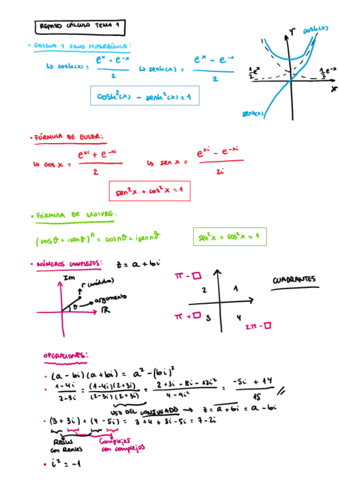 REPASO CÁLCULO TEMA 1
• COSENO Y SENO HIPERBÓLICOS:
↳ cosh(x) = e^x - e^-x / 2 ↳ senh(x) = e^x - e^-x / 2
cosh²(x) - senh²(x) = 1
Y
cosh(x)
½e^x
½e^-x
x
senh(x)
• FÓRMULA DE EULER:
↳ cos x = e^xi + e^-xi / 2 ↳ sen x = e^xi - e^-xi / 2i
sen²x + cos²x = 1
• FÓRMULA DE MOIVRE:
(cosθ + i senθ)^n = cos nθ + i sen nθ
sen²x + cos²x = 1
• NÚMEROS COMPLEJOS: z = a + bi
Im
r (módulo)
θ → argumento
IR
π - □
2 1
π + □ 3 4
2π - □
CUADRANTES
OPERACIONES:
• (a - bi)(a + bi) = a² - (bi)²
• 1-4i / 2-3i = (1-4i)(2+3i) / (2-3i)(2+3i) = 2+3i-8i-12i² / 4-9i² = -5i + 14 / 15
USO DEL CONJUGADO → z = a + bi = a - bi
• (3 + 3i) + (4 - 5i) = 3 + 4 + 3i - 5i = 7 - 2i
Reales con Reales
Complejos con complejos
• i² = -1